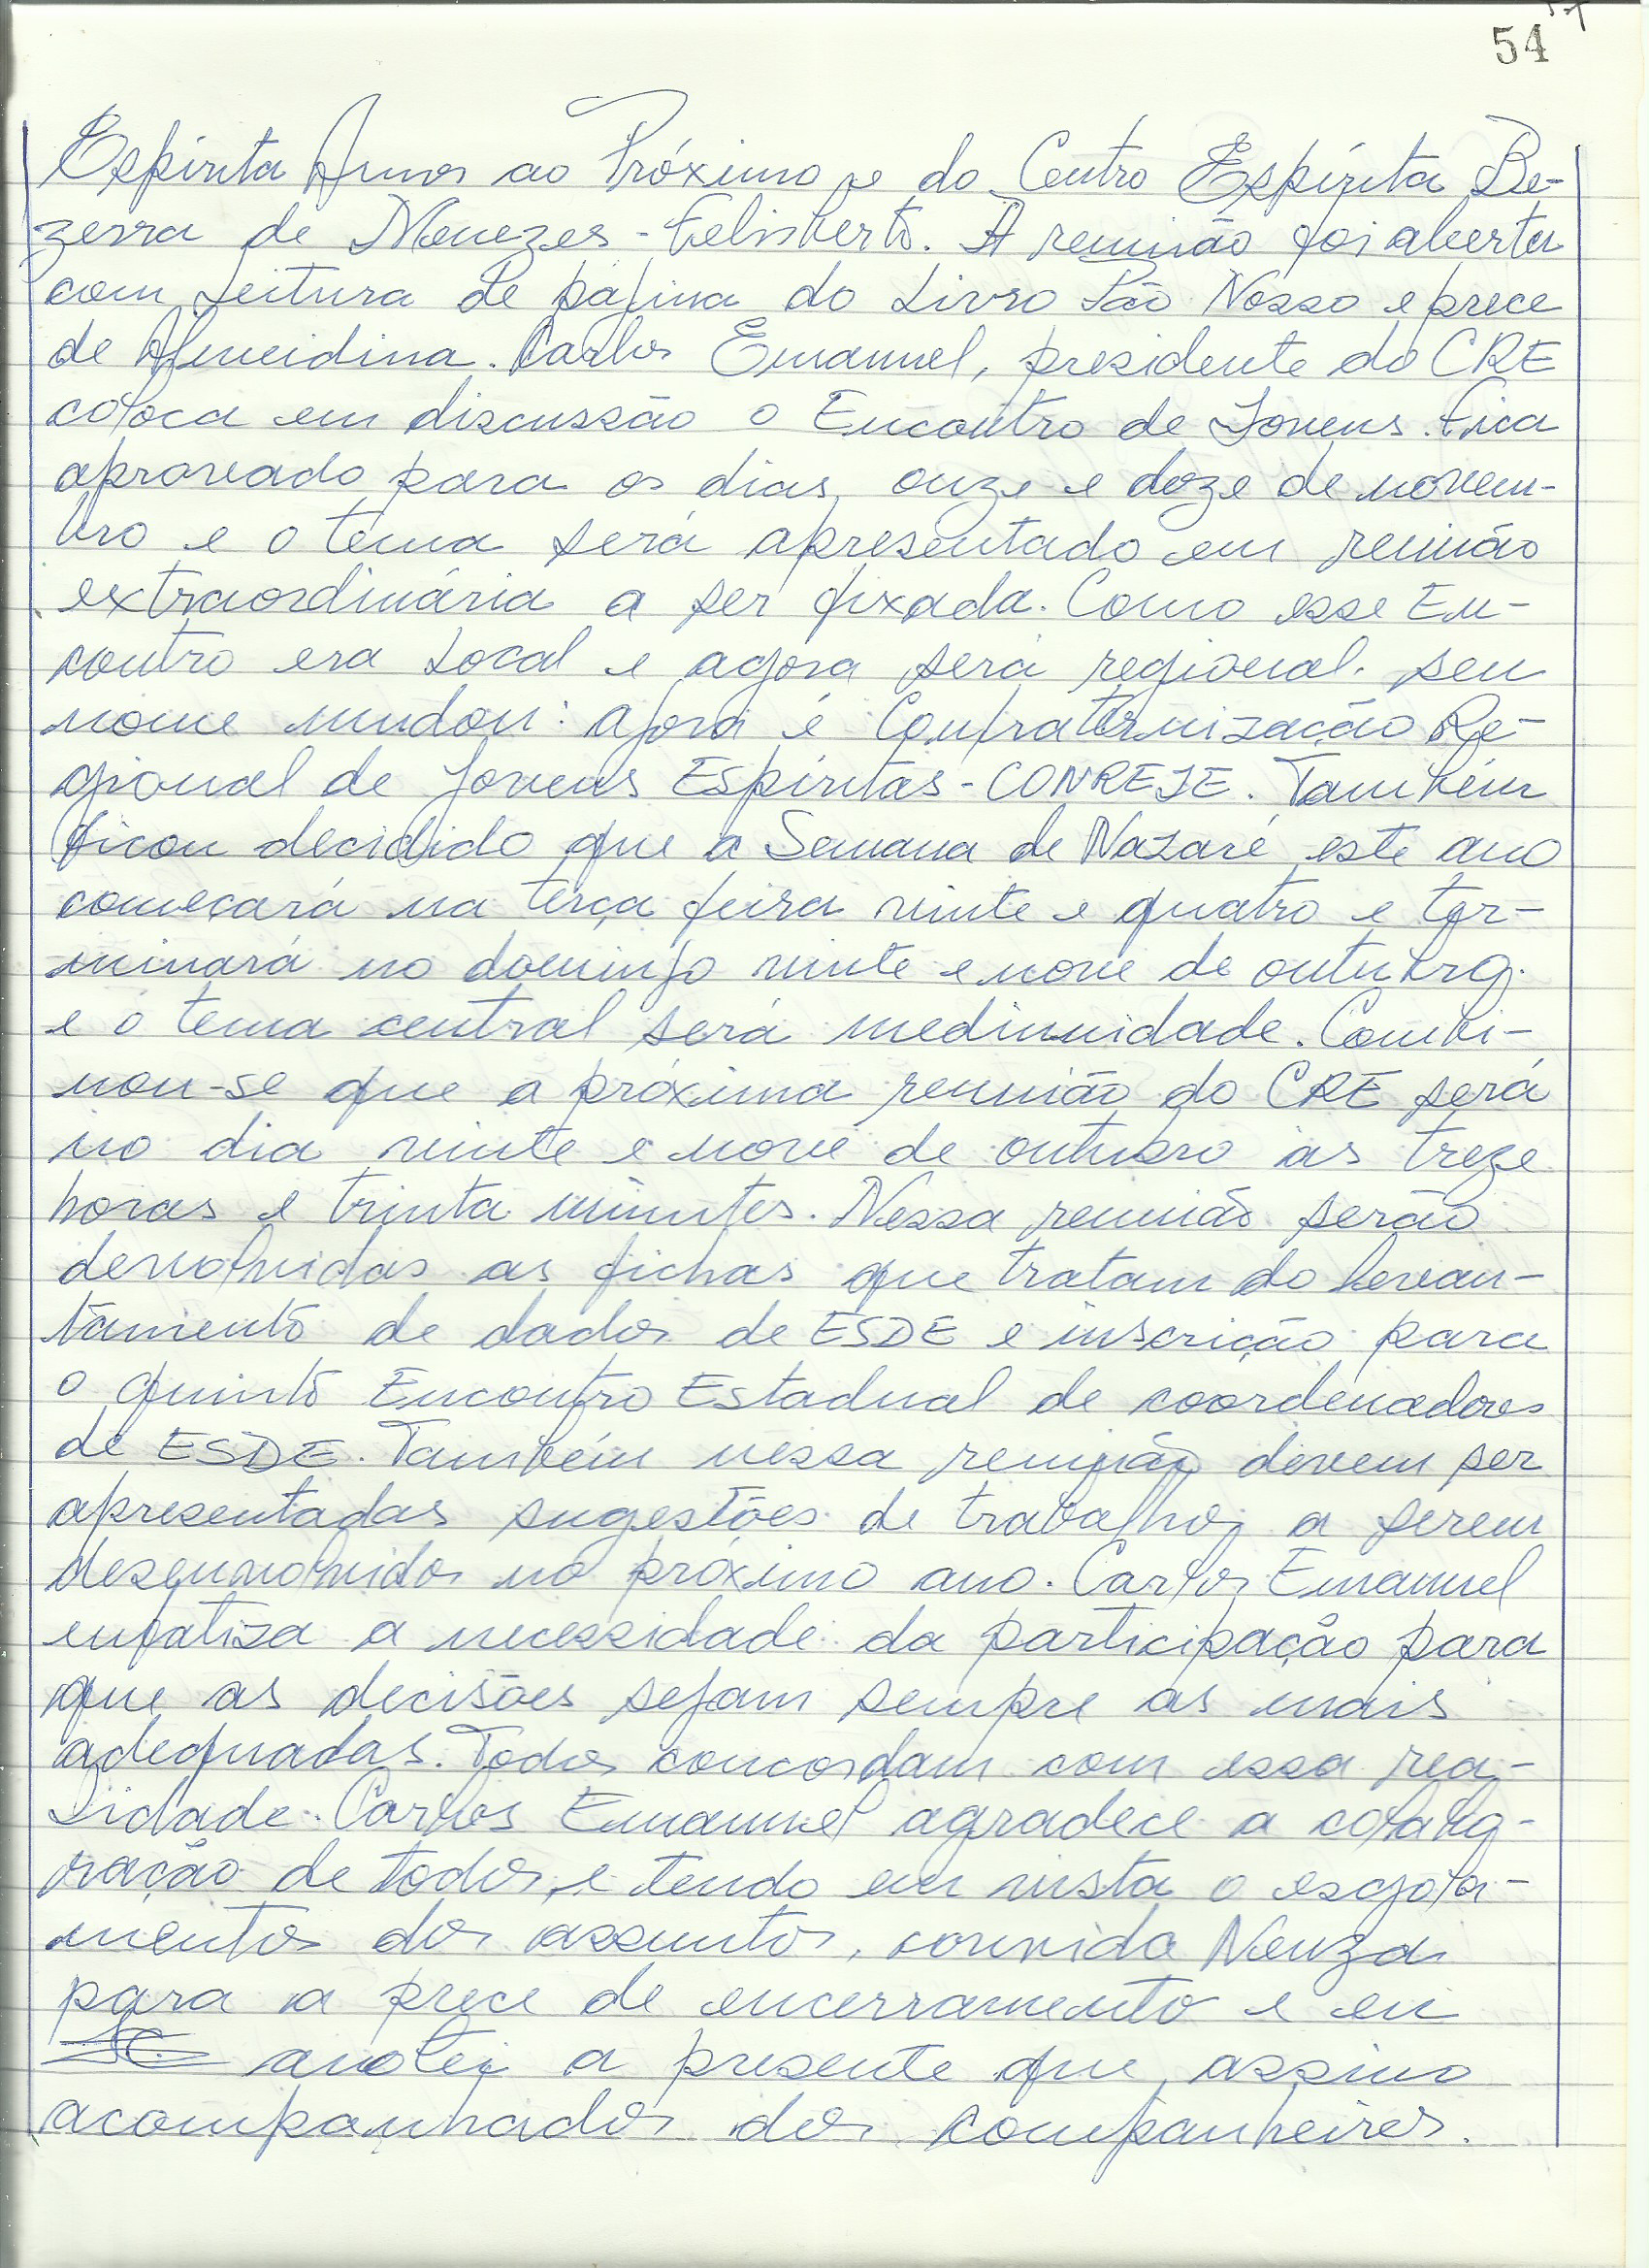 54
Espírita Amor ao Próximo e do Centro Espírita Be-
zerra de Menezes - Felisberto. A reunião foi aberta
com leitura de página do livro Pão Nosso e prece
de Almeidina. Carlos Emanuel, presidente do CRE
coloca em discussão o Encontro de Jovens. Fica
aprovado para os dias onze e doze de novem-
bro e o tema será apresentado em reunião
extraordinária a ser fixada. Como esse En-
contro era local e agora será regional. seu
nome mudou: agora é Confraternização Re-
gional de Jovens Espíritas - CONREJE. Também
ficou decidido que a Semana de Nazaré este ano
começará na terça feira vinte e quatro e ter-
minará no domingo vinte e nove de outubro.
e o tema central será mediunidade. Combi-
nou-se que a próxima reunião do CRE será
no dia vinte e nove de outubro às treze
horas e trinta minutos. Nessa reunião serão
devolvidas as fichas que tratam do levan-
tamento de dados de ESDE e inscrição para
o quinto Encontro Estadual de coordenadores
de ESDE. Também nessa reunião devem ser
apresentadas sugestões de trabalhos a serem
desenvolvidos no próximo ano. Carlos Emanuel
enfatiza a necessidade da participação para
que as decisões sejam sempre as mais
adequadas. Todos concordam com essa rea-
lidade. Carlos Emanuel agradece a colabo-
ração de todos, e tendo em vista o esgota-
mentos dos assuntos, convida Neuza
para a prece de encerramento e eu
anotei a presente que assino
acompanhados dos companheiros.